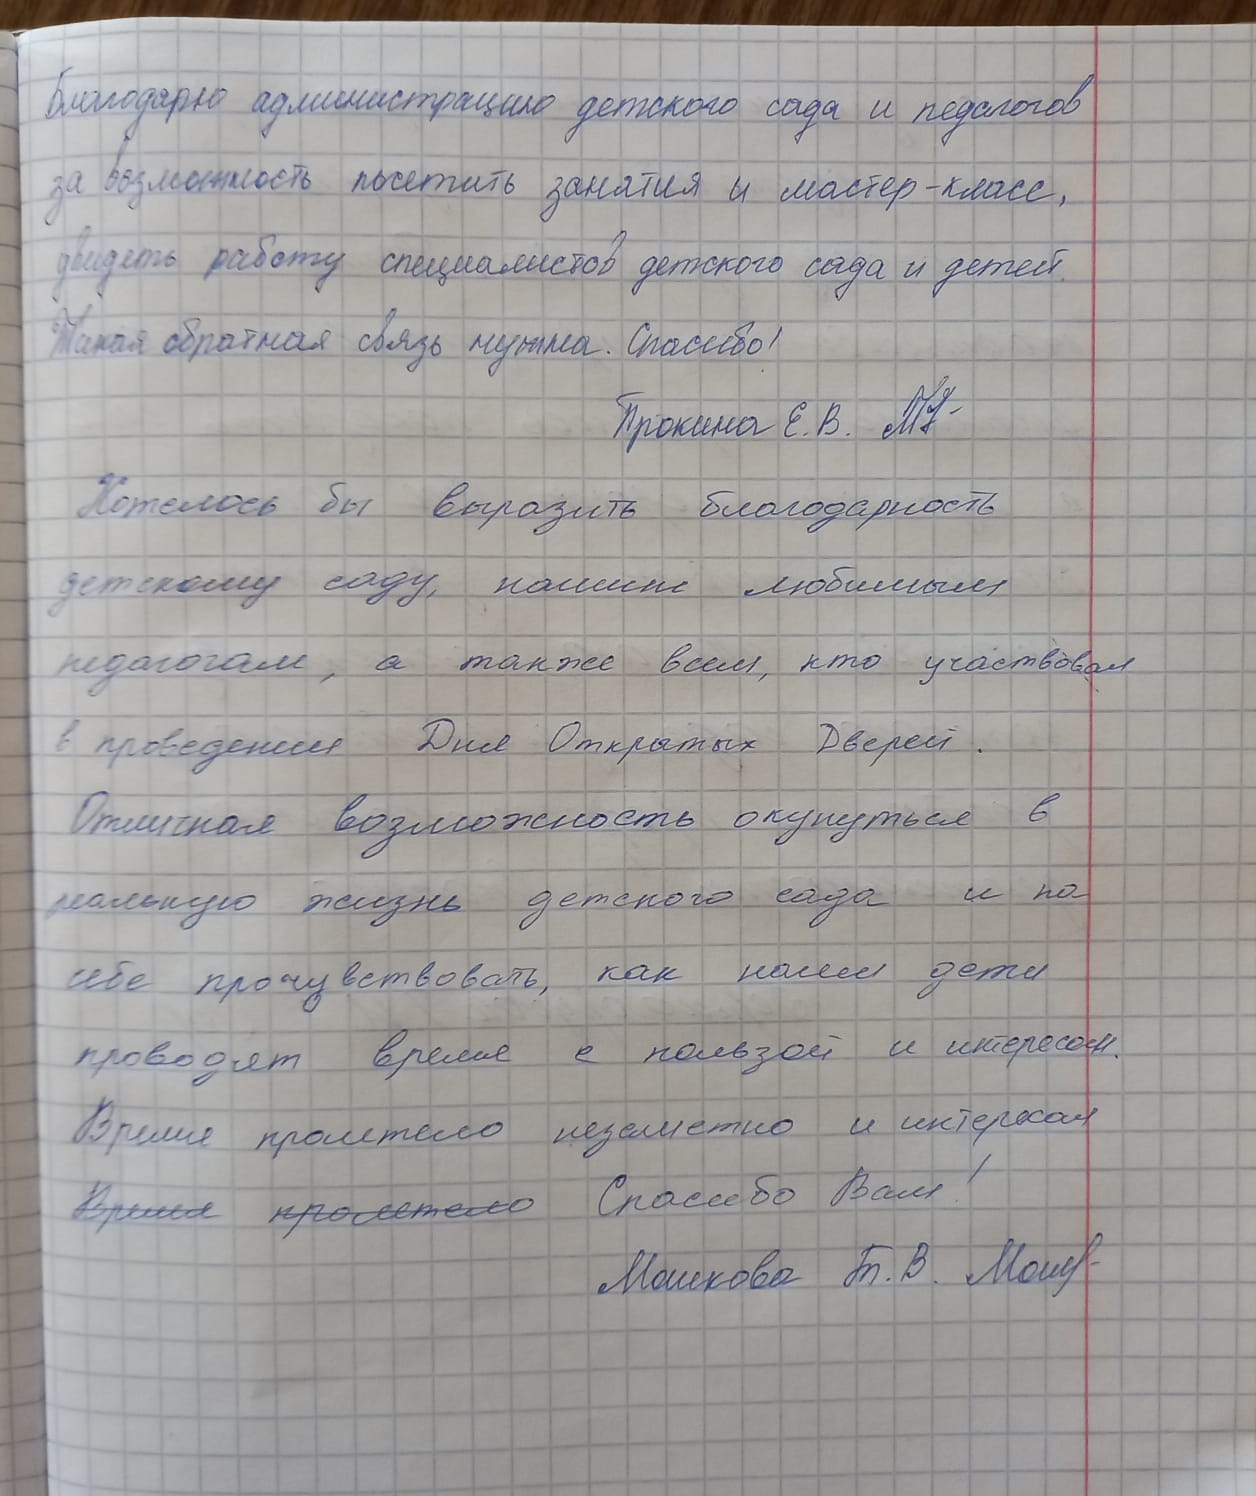 Благодарю администрацию детского сада и педагогов
за возможность посетить занятия и мастер-класс,
увидеть работу специалистов детского сада и детей.
Такая обратная связь нужна. Спасибо!
Прокина Е.В.
Хотелось бы выразить благодарность
детскому саду, нашим любимым
педагогам, а также всем, кто участвовал
в проведении Дня Открытых Дверей.
Отличная возможность окунуться в
реальную жизнь детского сада и на
себе прочувствовать, как наши дети
проводят время с пользой и интересом.
Время пролетело незаметно и
Время пролетело Спасибо Вам!
Машкова Т.В.